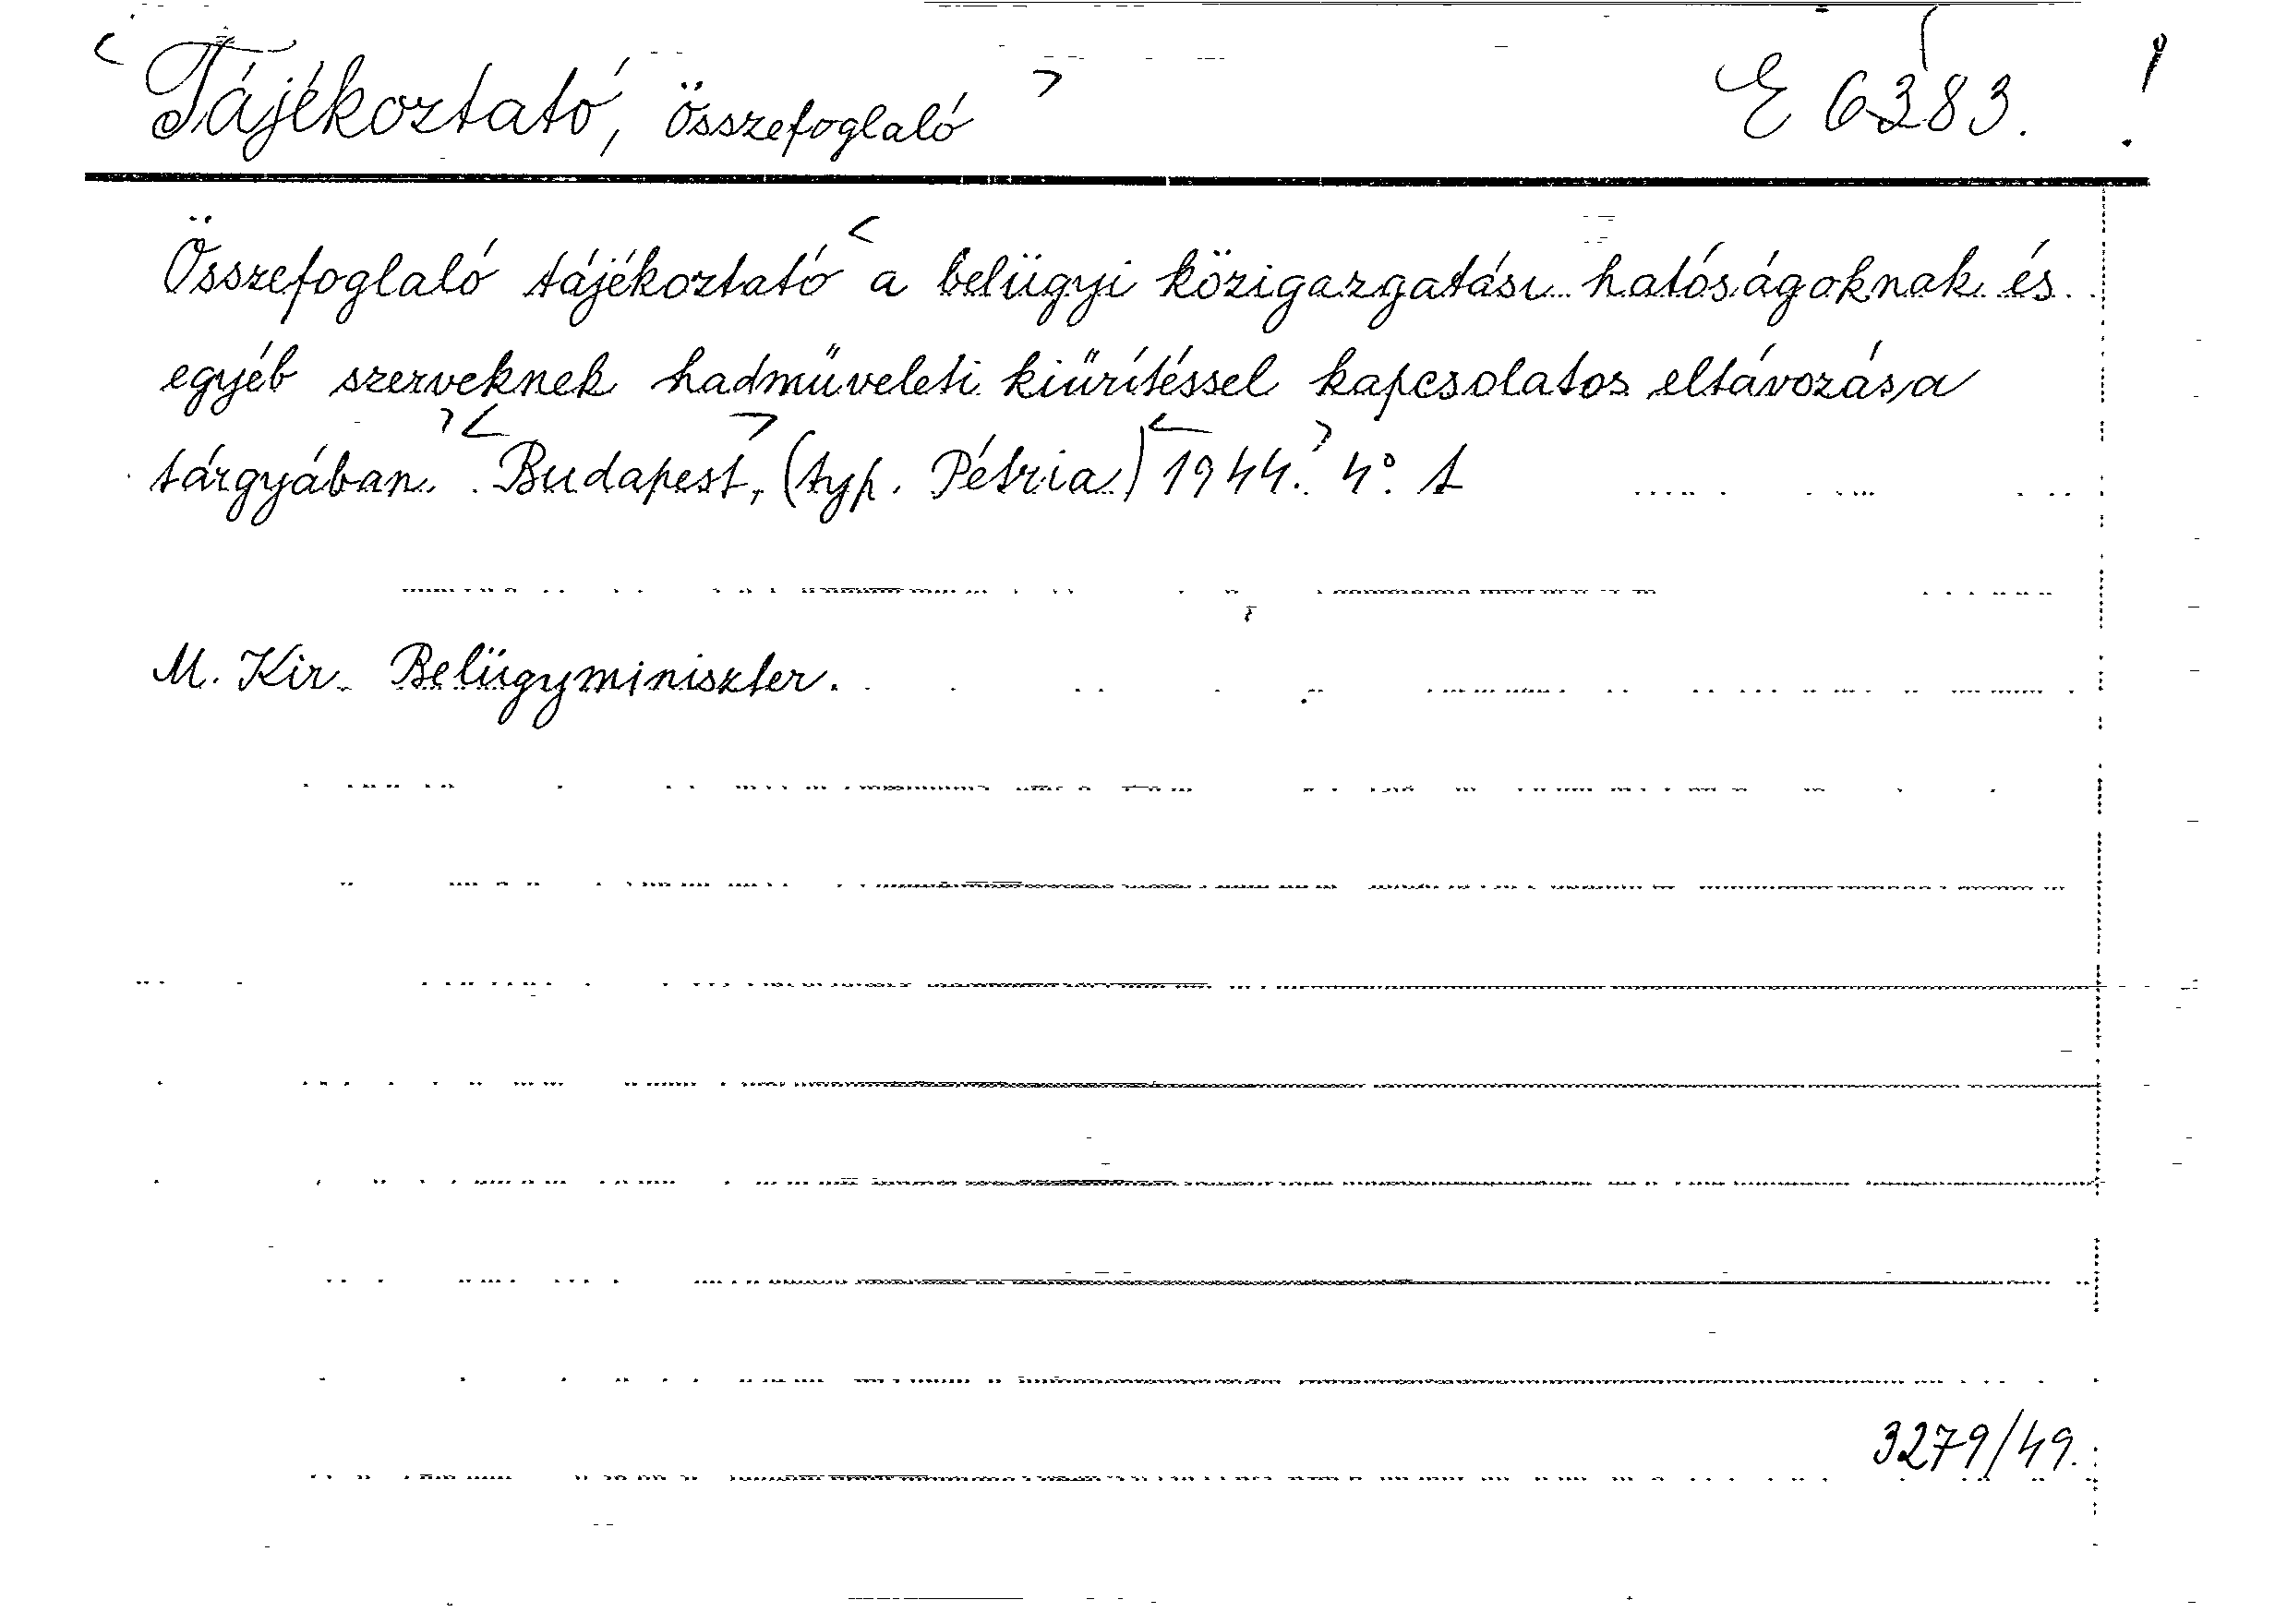 Tájékoztató, összefoglaló E 6383.
Összefoglaló tájékoztató a belügyi közigazgatási hatóságoknak és
egyéb szerveknek hadműveleti kiűrítéssel kapcsolatos eltávozása
tárgyában. Budapest, (typ. Pátria) 1944. 4° 1
M. Kir. Belügyminiszter.
3279/49.